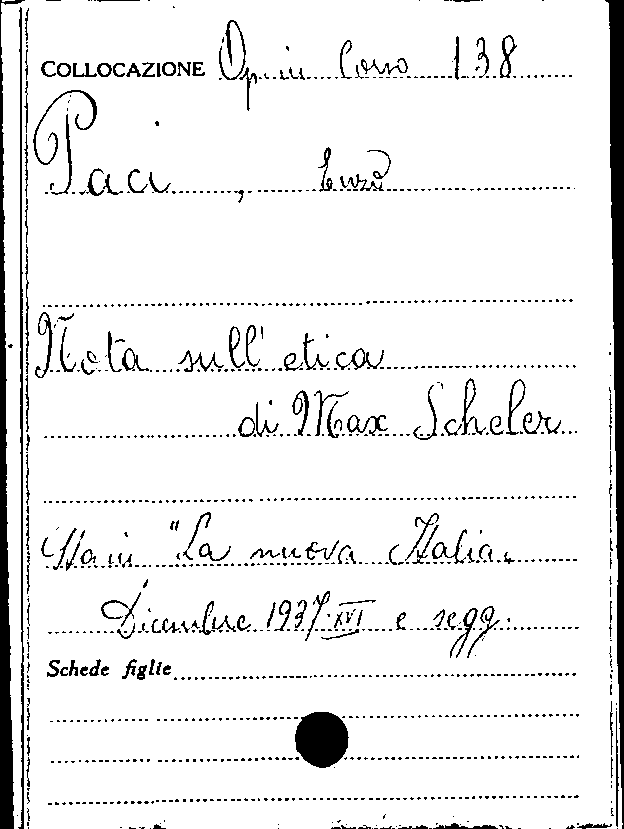 COLLOCAZIONE Op. in Corso 138
Paci, Enzo
Nota sull'etica
di Max Scheler
Sta in "La nuova Italia„
Dicembre 1937.XVI e segg.
Schede figlie